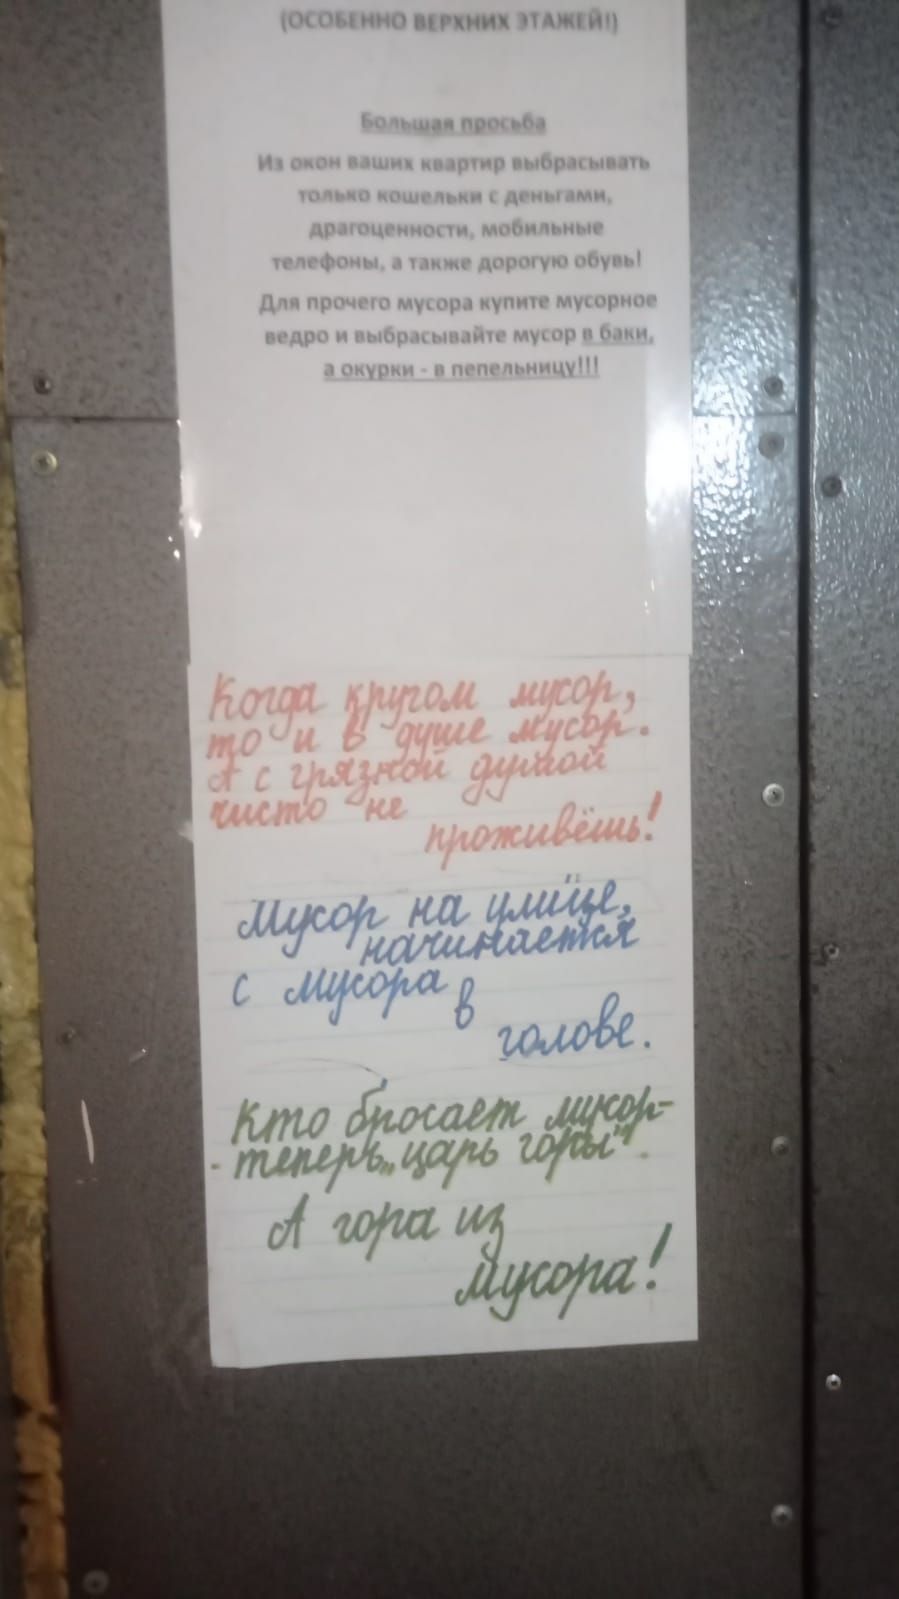 (ОСОБЕННО ВЕРХНИХ ЭТАЖЕЙ!)
Большая просьба
Из окон ваших квартир выбрасывать
только кошельки с деньгами,
драгоценности, мобильные
телефоны, а также дорогую обувь!
Для прочего мусора купите мусорное
ведро и выбрасывайте мусор в баки,
а окурки - в пепельницу!!!
Когда кругом мусор,
то и в душе мусор.
А с грязной душой
чисто не
проживёшь!
Мусор на улице,
начинается
с мусора в
голове.
Кто бросает мусор-
- теперь „царь горы".
А гора из
мусора!